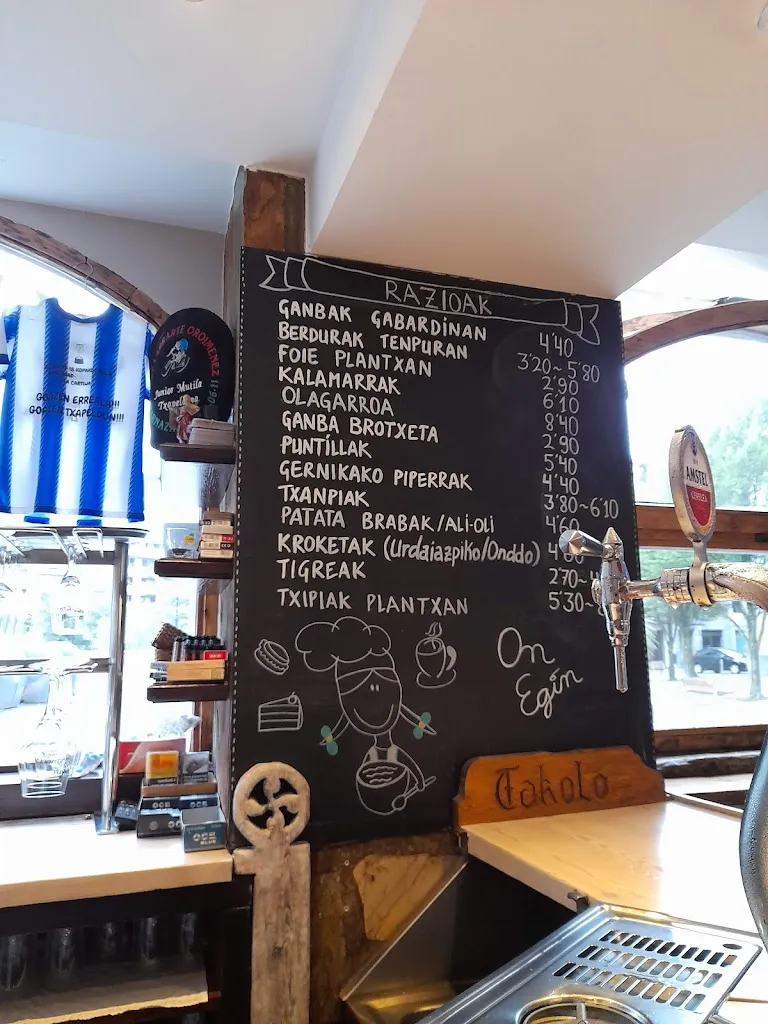 RAZIOAK
GANBAK GABARDINAN 4'40
BERDURAK TENPURAN 3'20~5'80
FOIE PLANTXAN 2'90
KALAMARRAK 6'10
OLAGARROA 8'40
GANBA BROTXETA 2'90
PUNTILLAK 5'40
GERNIKAKO PIPERRAK 4'40
TXANPIAK 3'80~6'10
PATATA BRABAK/ALI-OLI 4'60
KROKETAK (Urdaiazpiko/Onddo)
TIGREAK 2'70~
TXIPIAK PLANTXAN 5'30~
On
Egin
Takolo
AMSTEL
OROIMENEZ
Junior Mutila
OCB